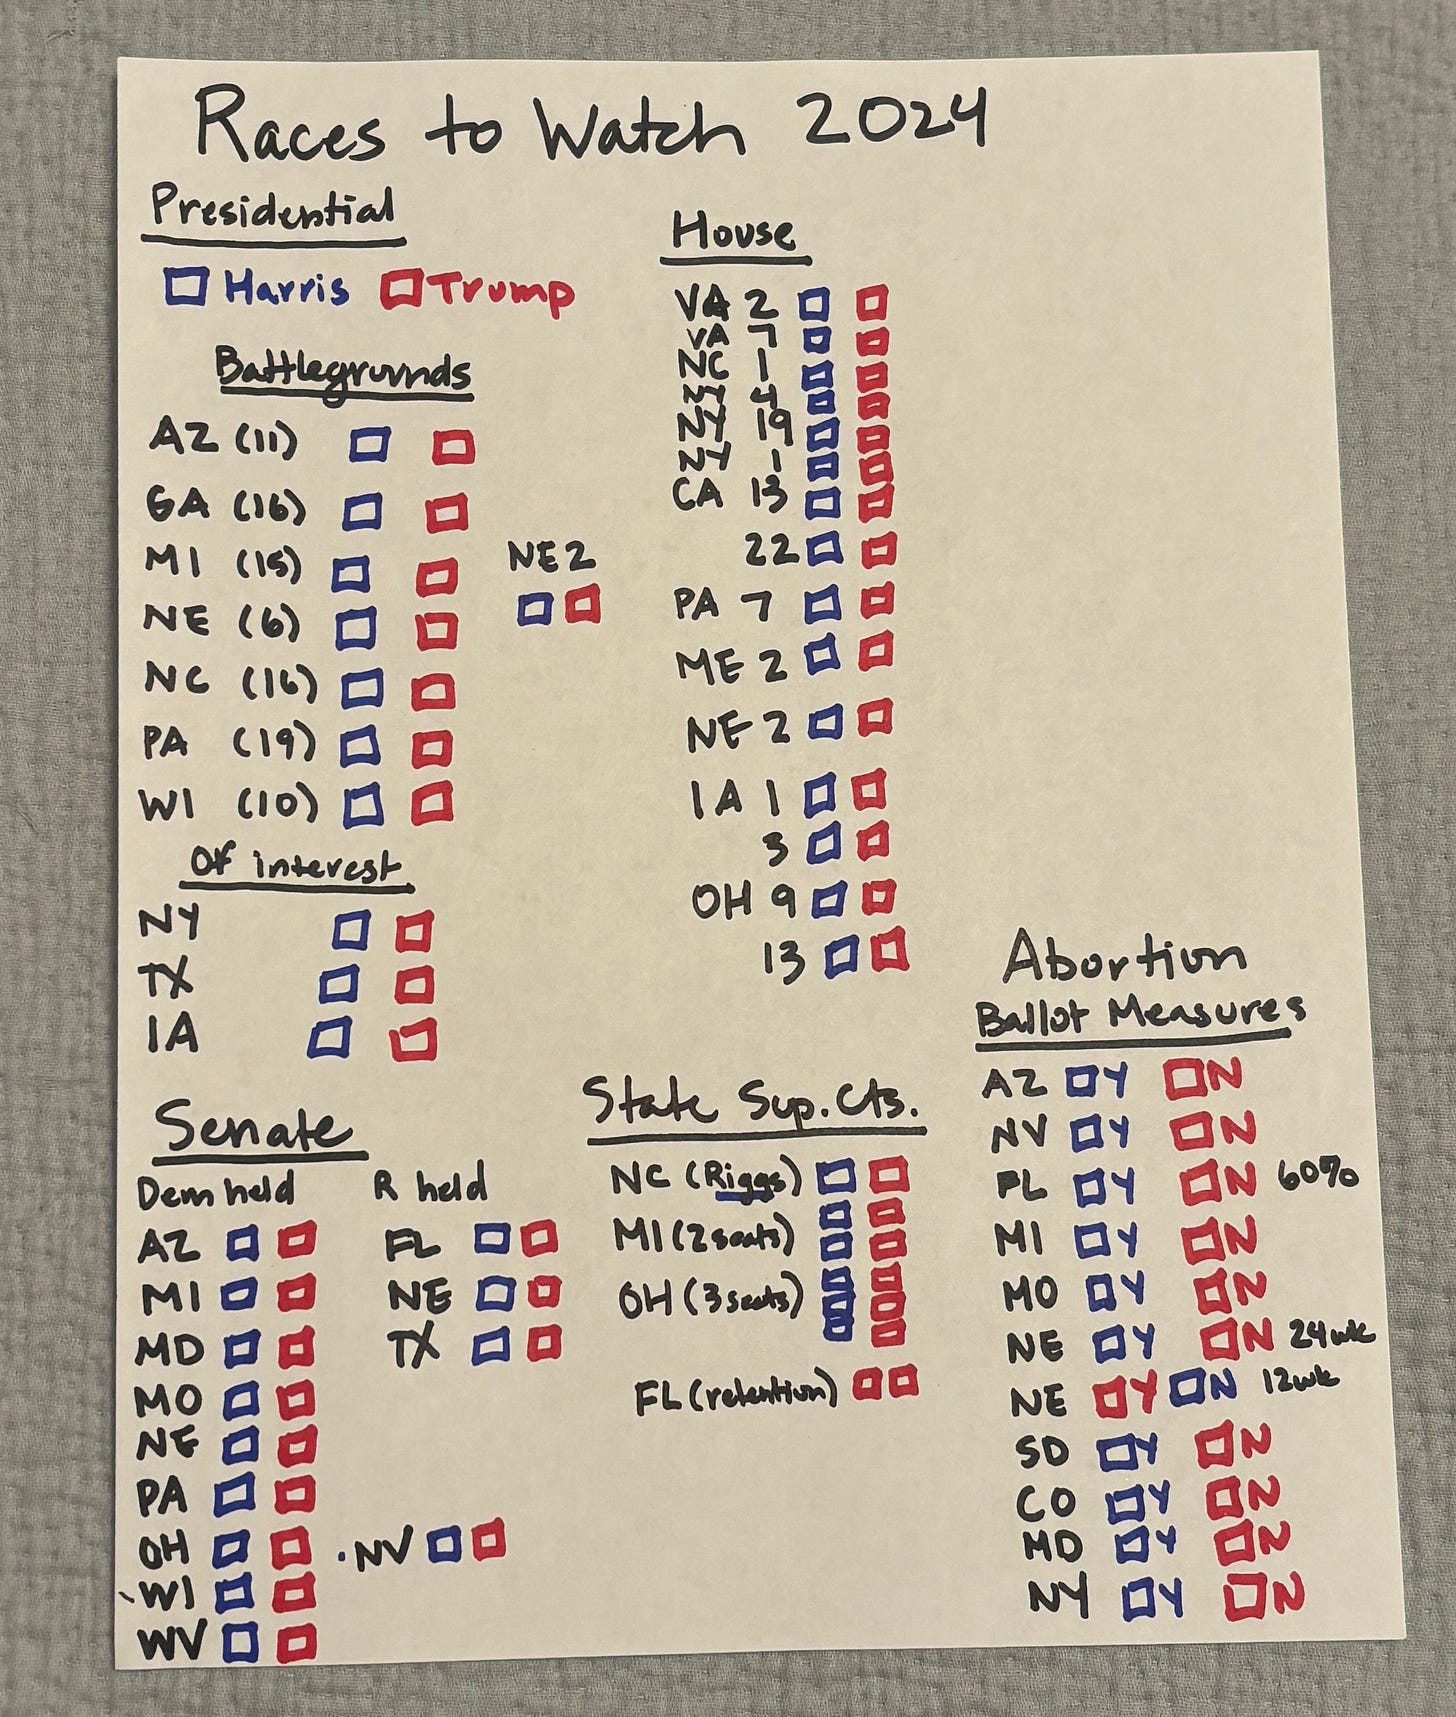 Races to Watch 2024
Presidential
Harris Trump
Battlegrounds
AZ (11)
GA (16)
MI (15)
NE (6)
NC (16)
PA (19)
WI (10)
NE 2
Of interest
NY
TX
IA
Senate
Dem held
AZ
MI
MD
MO
NE
PA
OH
WI
WV
R held
FL
NE
TX
NV
House
VA 2
VA 7
NC 1
NY 4
NY 19
NY 1
CA 13
22
PA 7
ME 2
NE 2
IA 1
3
OH 9
13
State Sup. Cts.
NC (Riggs)
MI (2 seats)
OH (3 seats)
FL (retention)
Abortion
Ballot Measures
AZ Y N
NV Y N
FL Y N 60%
MI Y N
MO Y N
NE Y N 24wk
NE Y N 12wk
SD Y N
CO Y N
MD Y N
NY Y N